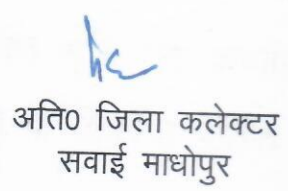 अति0 जिला कलेक्टर
सवाई माधोपुर